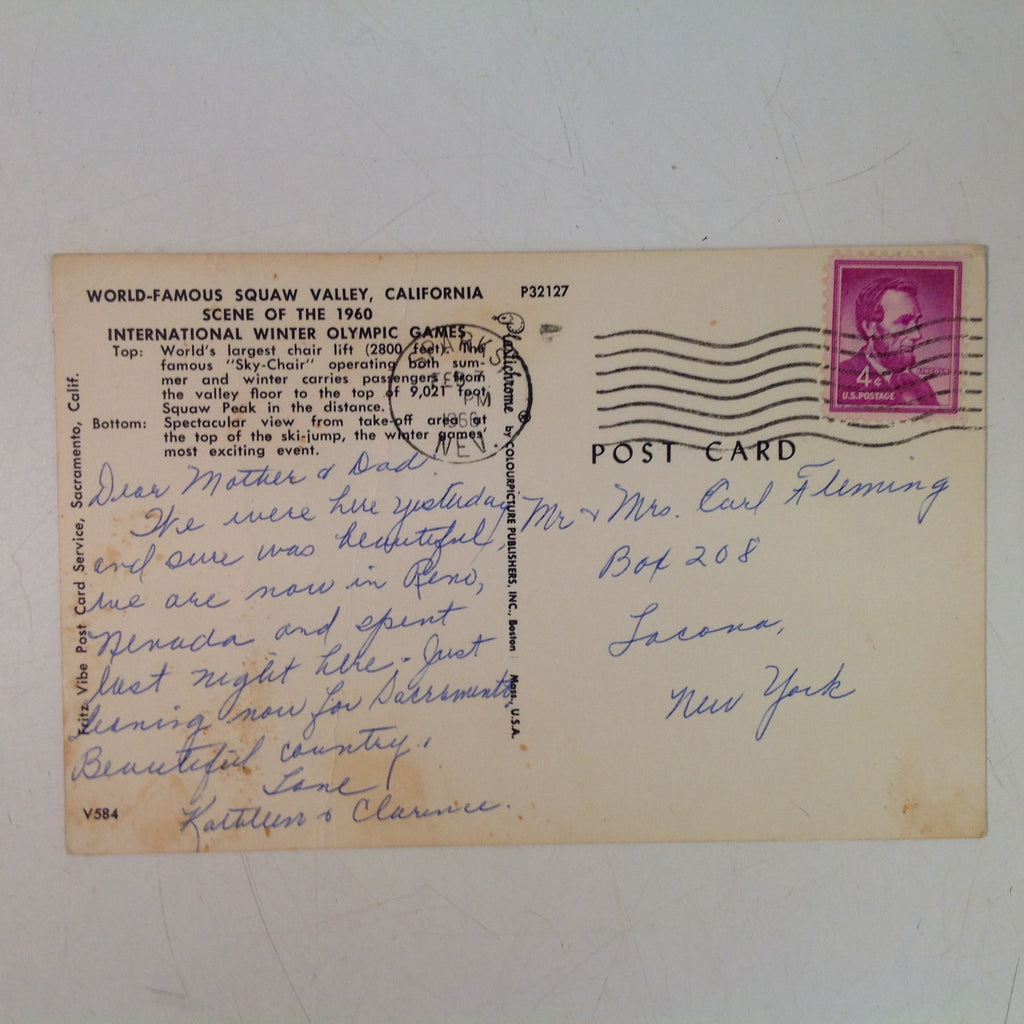 WORLD-FAMOUS SQUAW VALLEY, CALIFORNIA P32127
SCENE OF THE 1960
INTERNATIONAL WINTER OLYMPIC GAMES
Top: World's largest chair lift (2800 feet). The
famous "Sky-Chair" operating both sum-
mer and winter carries passengers from
the valley floor to the top of 9,021 foot
Squaw Peak in the distance.
Bottom: Spectacular view from take-off area at
the top of the ski-jump, the winter games'
most exciting event.
Dear Mother & Dad
We were here yesterday
and sure was beautiful,
we are now in Reno,
Nevada and spent
last night here. Just
leaving now for Sacramento
Beautiful country.
Love
Kathleen & Clarence.
V584
Fritz Vibe Post Card Service, Sacramento, Calif.
Plastichrome ® by COLOURPICTURE PUBLISHERS, INC., Boston Mass., U.S.A.
SPARKS,
PM
1966
NEV.
LINCOLN
4¢
U.S. POSTAGE
POST CARD
Mr & Mrs. Carl Fleming
Box 208
Lacona,
New York